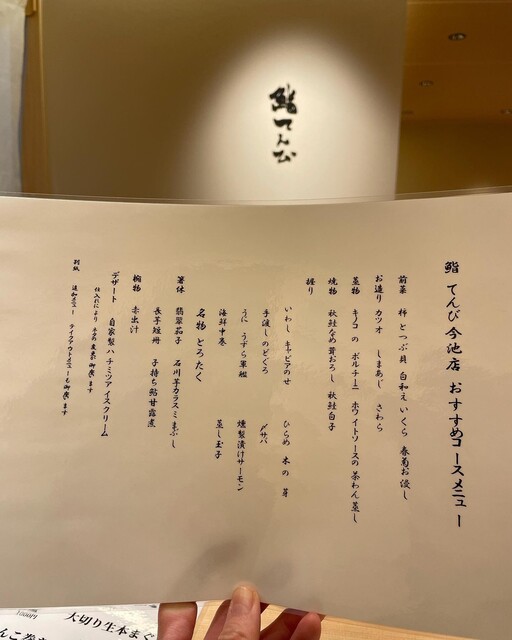 鮨 てんび
鮨 てんび今池店 おすすめコースメニュー
前菜 柿とつぶ貝 白和え いくら 春菊お浸し
お造り カツオ しまあじ さわら
蒸物 キノコ の ポルチーニ ホワイトソースの 茶わん蒸し
焼物 秋鮭なめ茸おろし 秋鮭白子
握り
いわし キャビアのせ ひらめ 木の芽
手渡し のどぐろ 〆サバ
うに うずら軍艦 燻製漬けサーモン
海鮮中巻 蒸し玉子
名物 とろたく
箸休 翡翠茄子 石川芋カラスミまぶし
長芋短冊 子持ち鮎甘露煮
椀物 赤出汁
デザート 自家製ハチミツアイスクリーム
仕入れにより ネタの変更御座います
別紙 追加メニュー テイクアウトメニューも御座います
大切り生本まぐ